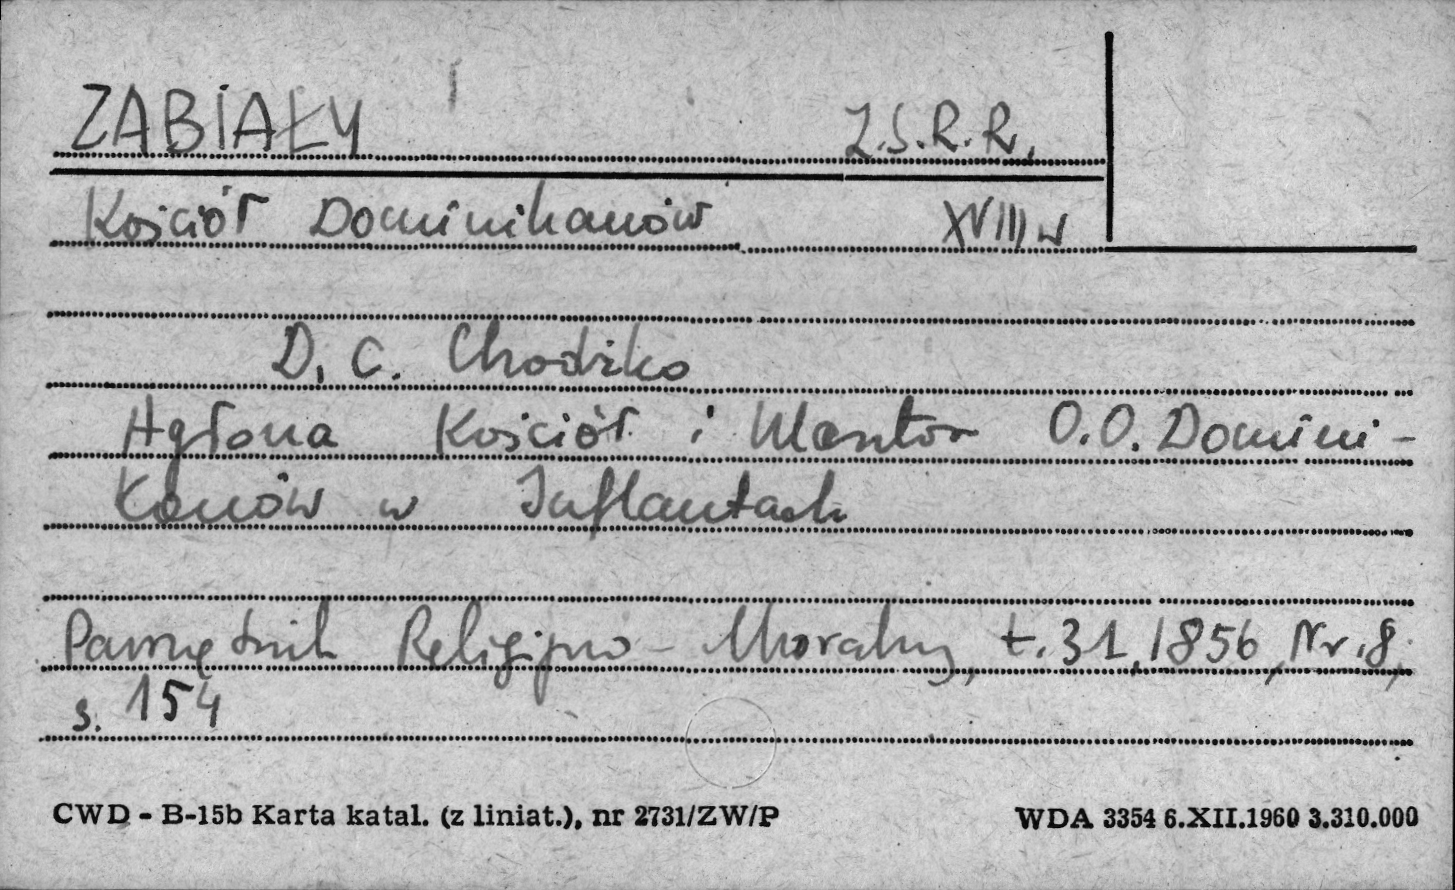 ZABIAŁY Z.S.R.R.
Kościół Dominikanów XVIII w
D. C. Chodźko
Agłona Kościół i klasztor O.O. Domini-
kanów w Inflantach
Pamiętnik Religijno-Moralny, t. 31, 1856, Nr. 8,
s. 154
CWD - B-15b Karta katal. (z liniat.), nr 2731/ZW/P WDA 3354 6.XII.1960 3.310.000